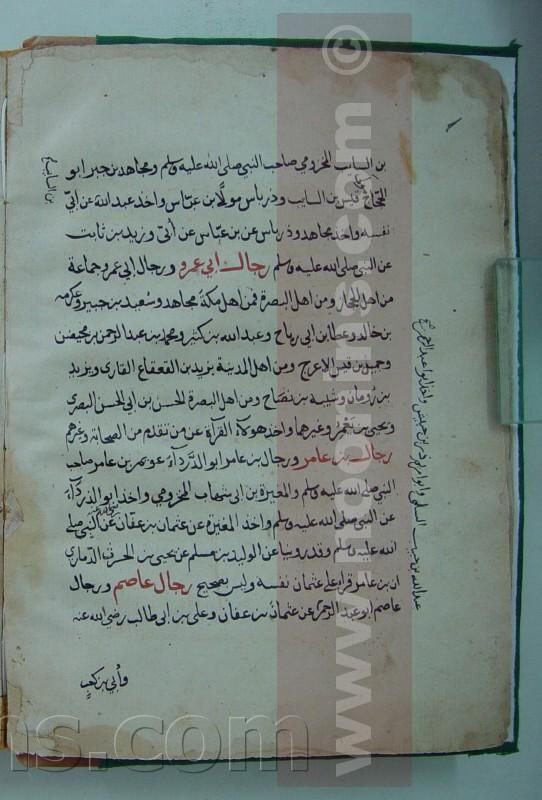 بن السايب المخزومي صاحب النبي صلى الله عليه وسلم ومجاهد بن جبر ابو
الحجاج قيس بن السايب ودرباس مولا بن عباس واخذ عبدالله عن ابي
نفسه واخذ مجاهد ودرباس عن بن عباس عن ابي وزيد بن ثابت
عن النبي صلى الله عليه وسلم رجال ابي عمرو ورجال ابي عمرو جماعة
من اهل الحجاز ومن اهل البصرة فمن اهل مكة مجاهد وسعيد بن جبير وعكرمه
بن خالد وعطا بن ابي رباح وعبد الله بن كثير ومحمد بن عبد الرحمن بن محيصن
وحميد بن قيس الاعرج ومن اهل المدينة يزيد بن القعقاع القاري ويزيد
بن رومان وشيبه بن نصاح ومن اهل البصرة الحسن بن ابي الحسن البصري
ويحيى بن يعمر وغيرها واخذ هولاء القرآة عن من تقدم من الصحابة وغيرهم
رجال بن عامر ورجال بن عامر ابو الدرداء عويمر بن عامر صاحب
النبي صلى الله عليه وسلم والمغيرة بن ابي شهاب المخزومي واخذ ابو الدرداء
عن النبي صلى الله عليه وسلم واخذ المغيرة عن عثمان بن عفان عن النبي صلى
الله عليه وسلم وقد روينا عن الوليد بن مسلم عن يحيى بن الحرث الذماري
ان بن عامر قرا على عثمان نفسه وليس بصحيح رجال عاصم ورجال
عاصم ابو عبد الرحمن عن عثمان بن عفان وعلي بن ابي طالب رضي الله عنه
وأبي بن كعب
بن السايب
عبدالله بن حبيب السلمي وابو مريم زر بن حبيش واخذ ابو عبد الرحمن
www.noorlins.com ©
ns.com